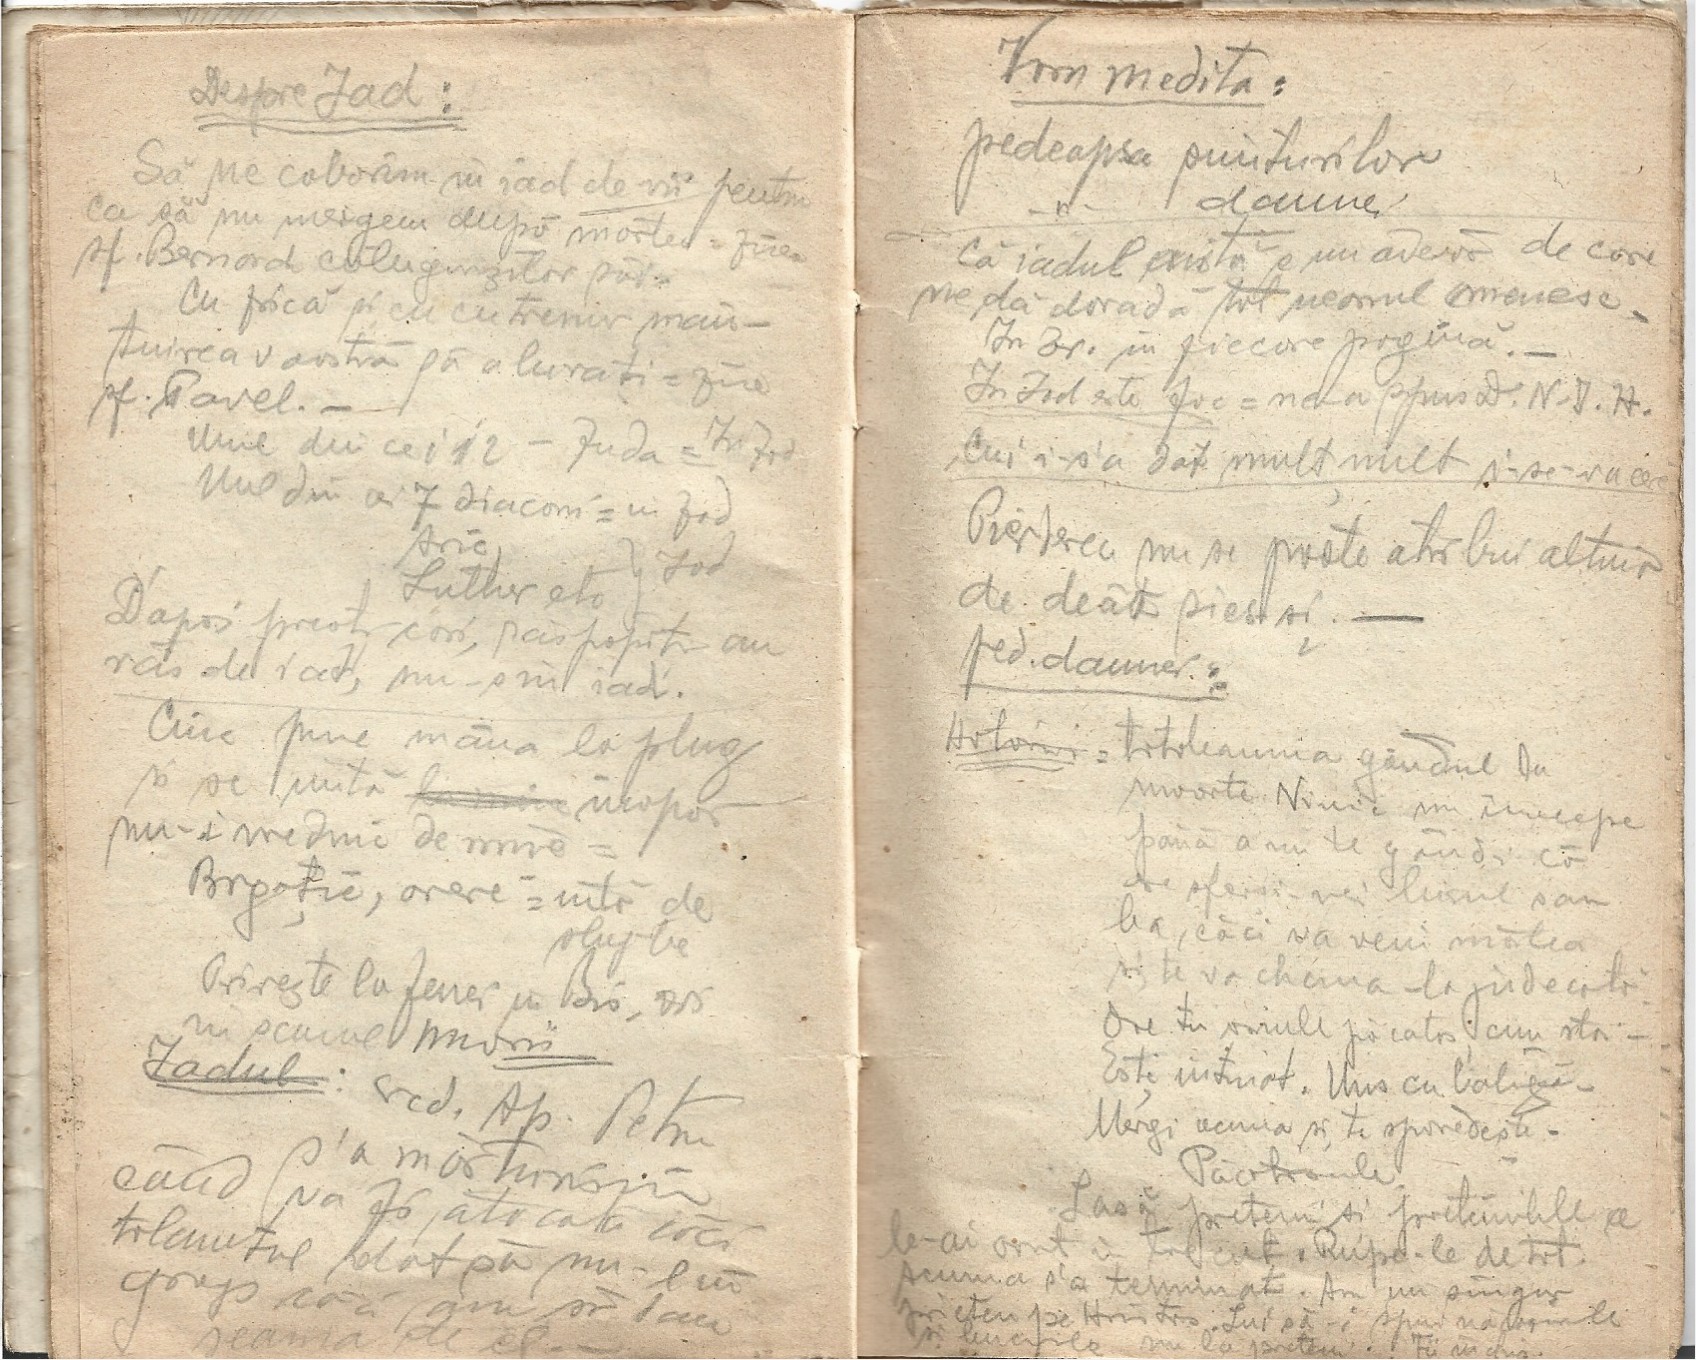 Despre Iad:
Să ne coborâm în iad de vii pentru
ca să nu mergem după morte = zice
sf. Bernard călugărilor săi.
Cu frică și cu cutremur mân-
tuirea voastră să a lurați = zice
sf. Pavel. —
Unul din cei 12 — Iuda = în Iad
Unul din cei 7 diaconi = în Iad
Arie,
Luther etc } Iad
Dapoi preoți cari, răspopiți au
râs de iad, nu-s în iad.
Cine pune mâna la plug
și se uită înapoi
nu-i vrednic de mine =
uită de
slujbe
Privește la femei în Bis,
în scaunul Morii
Iadul: Ap. Petru
s'a mărturisit
când va fi
talantul dat să nu-l în
grop căci am să dau
seama de el. —
Vom medita:
pedeapsa simțurilor
-"- daunei
Că iadul există e un adevăr de care
ne dă dovadă tot neamul omenesc.
In Sr. în fiecare pagină. —
In Iad este foc = ne-a spus D. N. I. H.
Cui i-s'a dat mult mult i-se-va cere
Pierderea nu se poate atribui altuia
de decât sieși. —
ped. daunei:
Hotărâri = totdeauna gândul la
moarte. Nimic nu începe
până a nu te gândi că
ba, căci va veni mâtea
și te va chema la judecată.
Ore tu omule păcatos, cum stai —
Ești întinat. Uns cu balegă —
Mergi acuma și te spovedește —
Păcatoasule.
Lasă pretenii și preteniile ce
le-ai avut în trecut. Rupe-le de tot.
Acuma s'a terminat. Am un singur
prieten pe Hristos. Lui să-i spui năcazurile
și bucuriile nu la preteni.